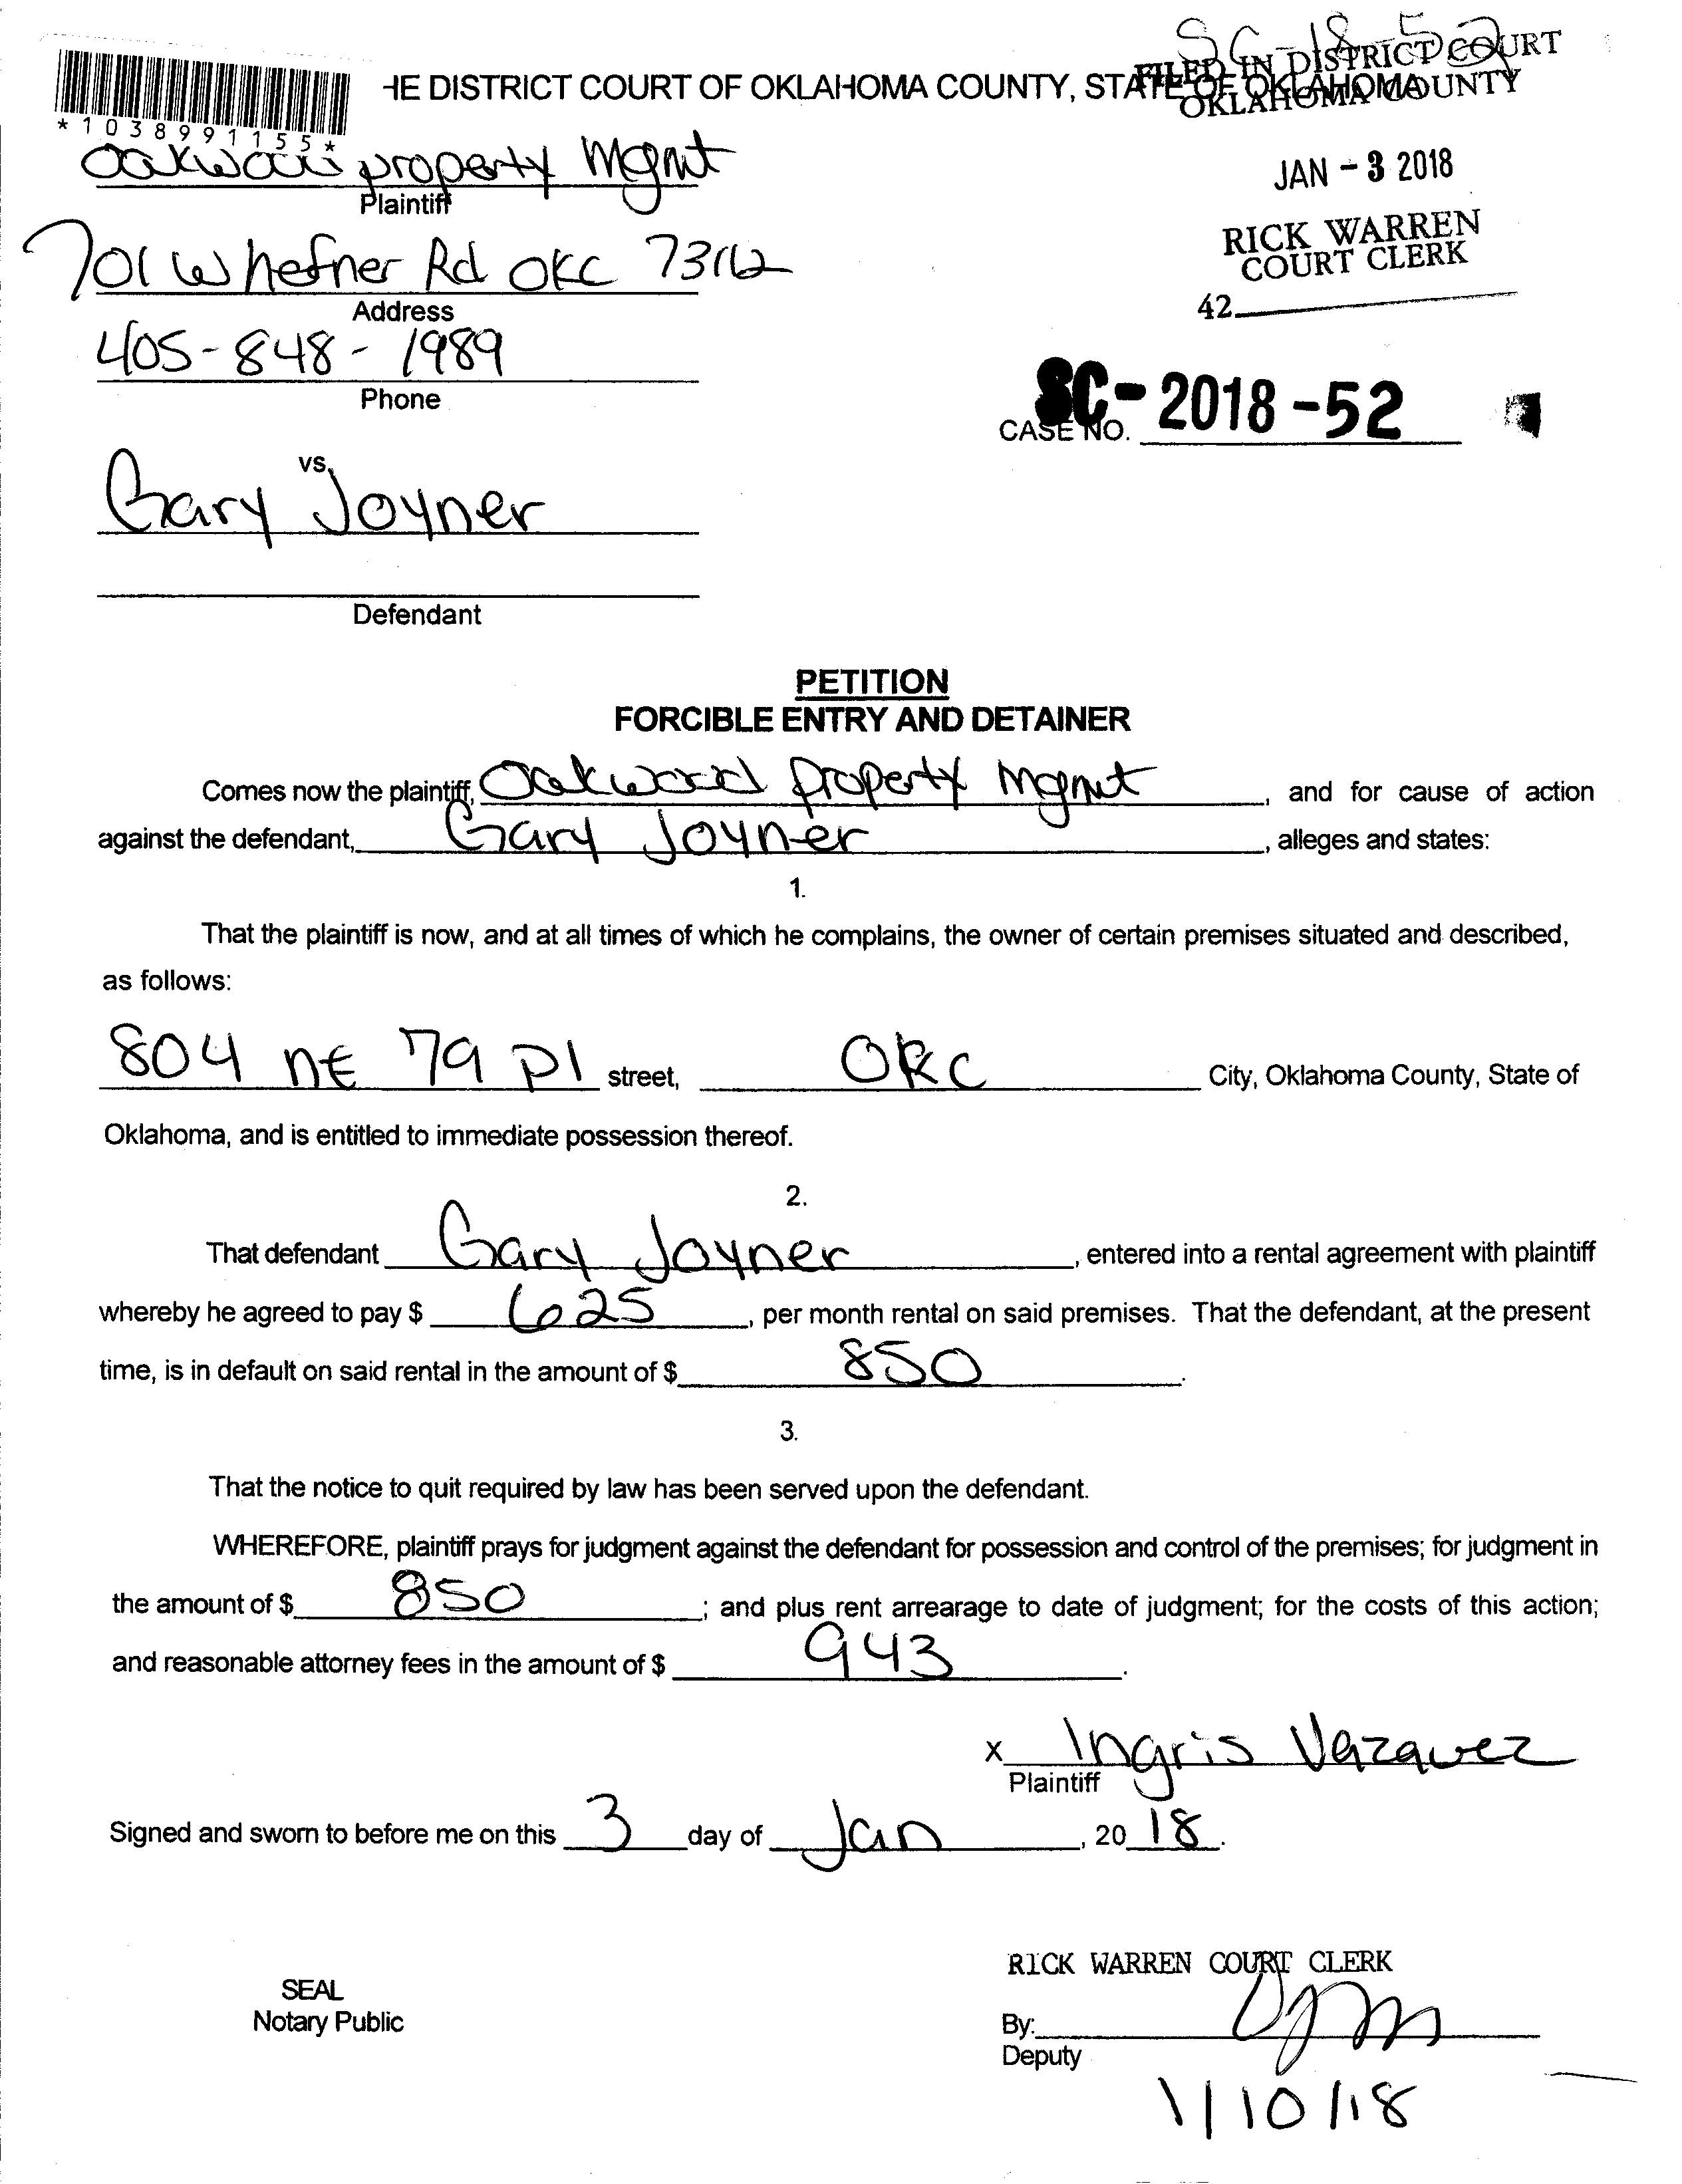 SC-18-52
FILED IN DISTRICT COURT
OKLAHOMA COUNTY
HE DISTRICT COURT OF OKLAHOMA COUNTY, STATE OF OKLAHOMA
*1038991155*
JAN - 3 2018
RICK WARREN
COURT CLERK
42
Oakwood property Mgmt
Plaintiff
701 W hefner Rd OKC 73112
Address
405-848-1989
Phone
SC-2018-52
CASE NO.
vs.
Gary Joyner
Defendant
PETITION
FORCIBLE ENTRY AND DETAINER
Comes now the plaintiff, Oakwood Property Mgmt, and for cause of action
against the defendant, Gary Joyner, alleges and states:
1.
That the plaintiff is now, and at all times of which he complains, the owner of certain premises situated and described,
as follows:
804 NE 79 Pl street, OKC City, Oklahoma County, State of
Oklahoma, and is entitled to immediate possession thereof.
2.
That defendant Gary Joyner, entered into a rental agreement with plaintiff
whereby he agreed to pay $ 625, per month rental on said premises. That the defendant, at the present
time, is in default on said rental in the amount of $ 850.
3.
That the notice to quit required by law has been served upon the defendant.
WHEREFORE, plaintiff prays for judgment against the defendant for possession and control of the premises; for judgment in
the amount of $ 850; and plus rent arrearage to date of judgment; for the costs of this action;
and reasonable attorney fees in the amount of $ 943.
x Ingris Vazquez
Plaintiff
Signed and sworn to before me on this 3 day of Jan, 2018.
RICK WARREN COURT CLERK
SEAL
Notary Public
By:
Deputy
1/10/18